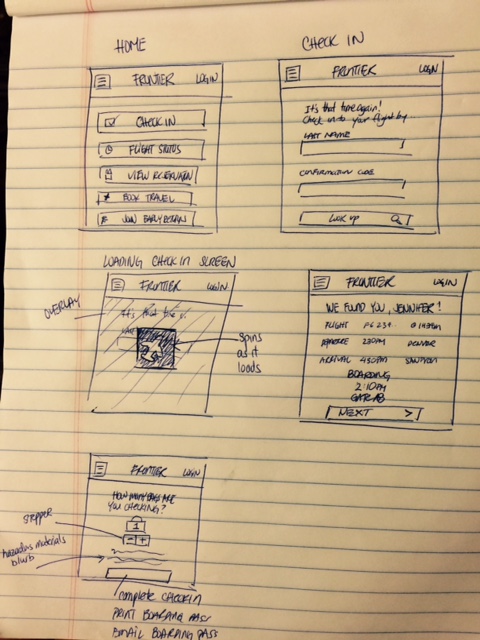 HOME
CHECK IN
FRONTIER LOGIN
CHECK IN
FLIGHT STATUS
VIEW
BOOK TRAVEL
JOIN EARLYRETURN
FRONTIER LOGIN
It's that time again!
Check in to your flight by
LAST NAME
CONFIRMATION CODE
LOOK UP
LOADING CHECK IN SCREEN
OVERLAY
FRONTIER LOGIN
It's that time
spins
as it
loads
FRONTIER LOGIN
WE FOUND YOU, JENNIFER!
FLIGHT
230PM DENVER
ARRIVAL 430PM
BOARDING
2:10PM
NEXT >
FRONTIER LOGIN
HOW MANY BAGS ARE
YOU CHECKING?
1
- +
STEPPER
hazardous materials
blurb
complete CHECKIN
PRINT BOARDING PASS
EMAIL BOARDING PASS